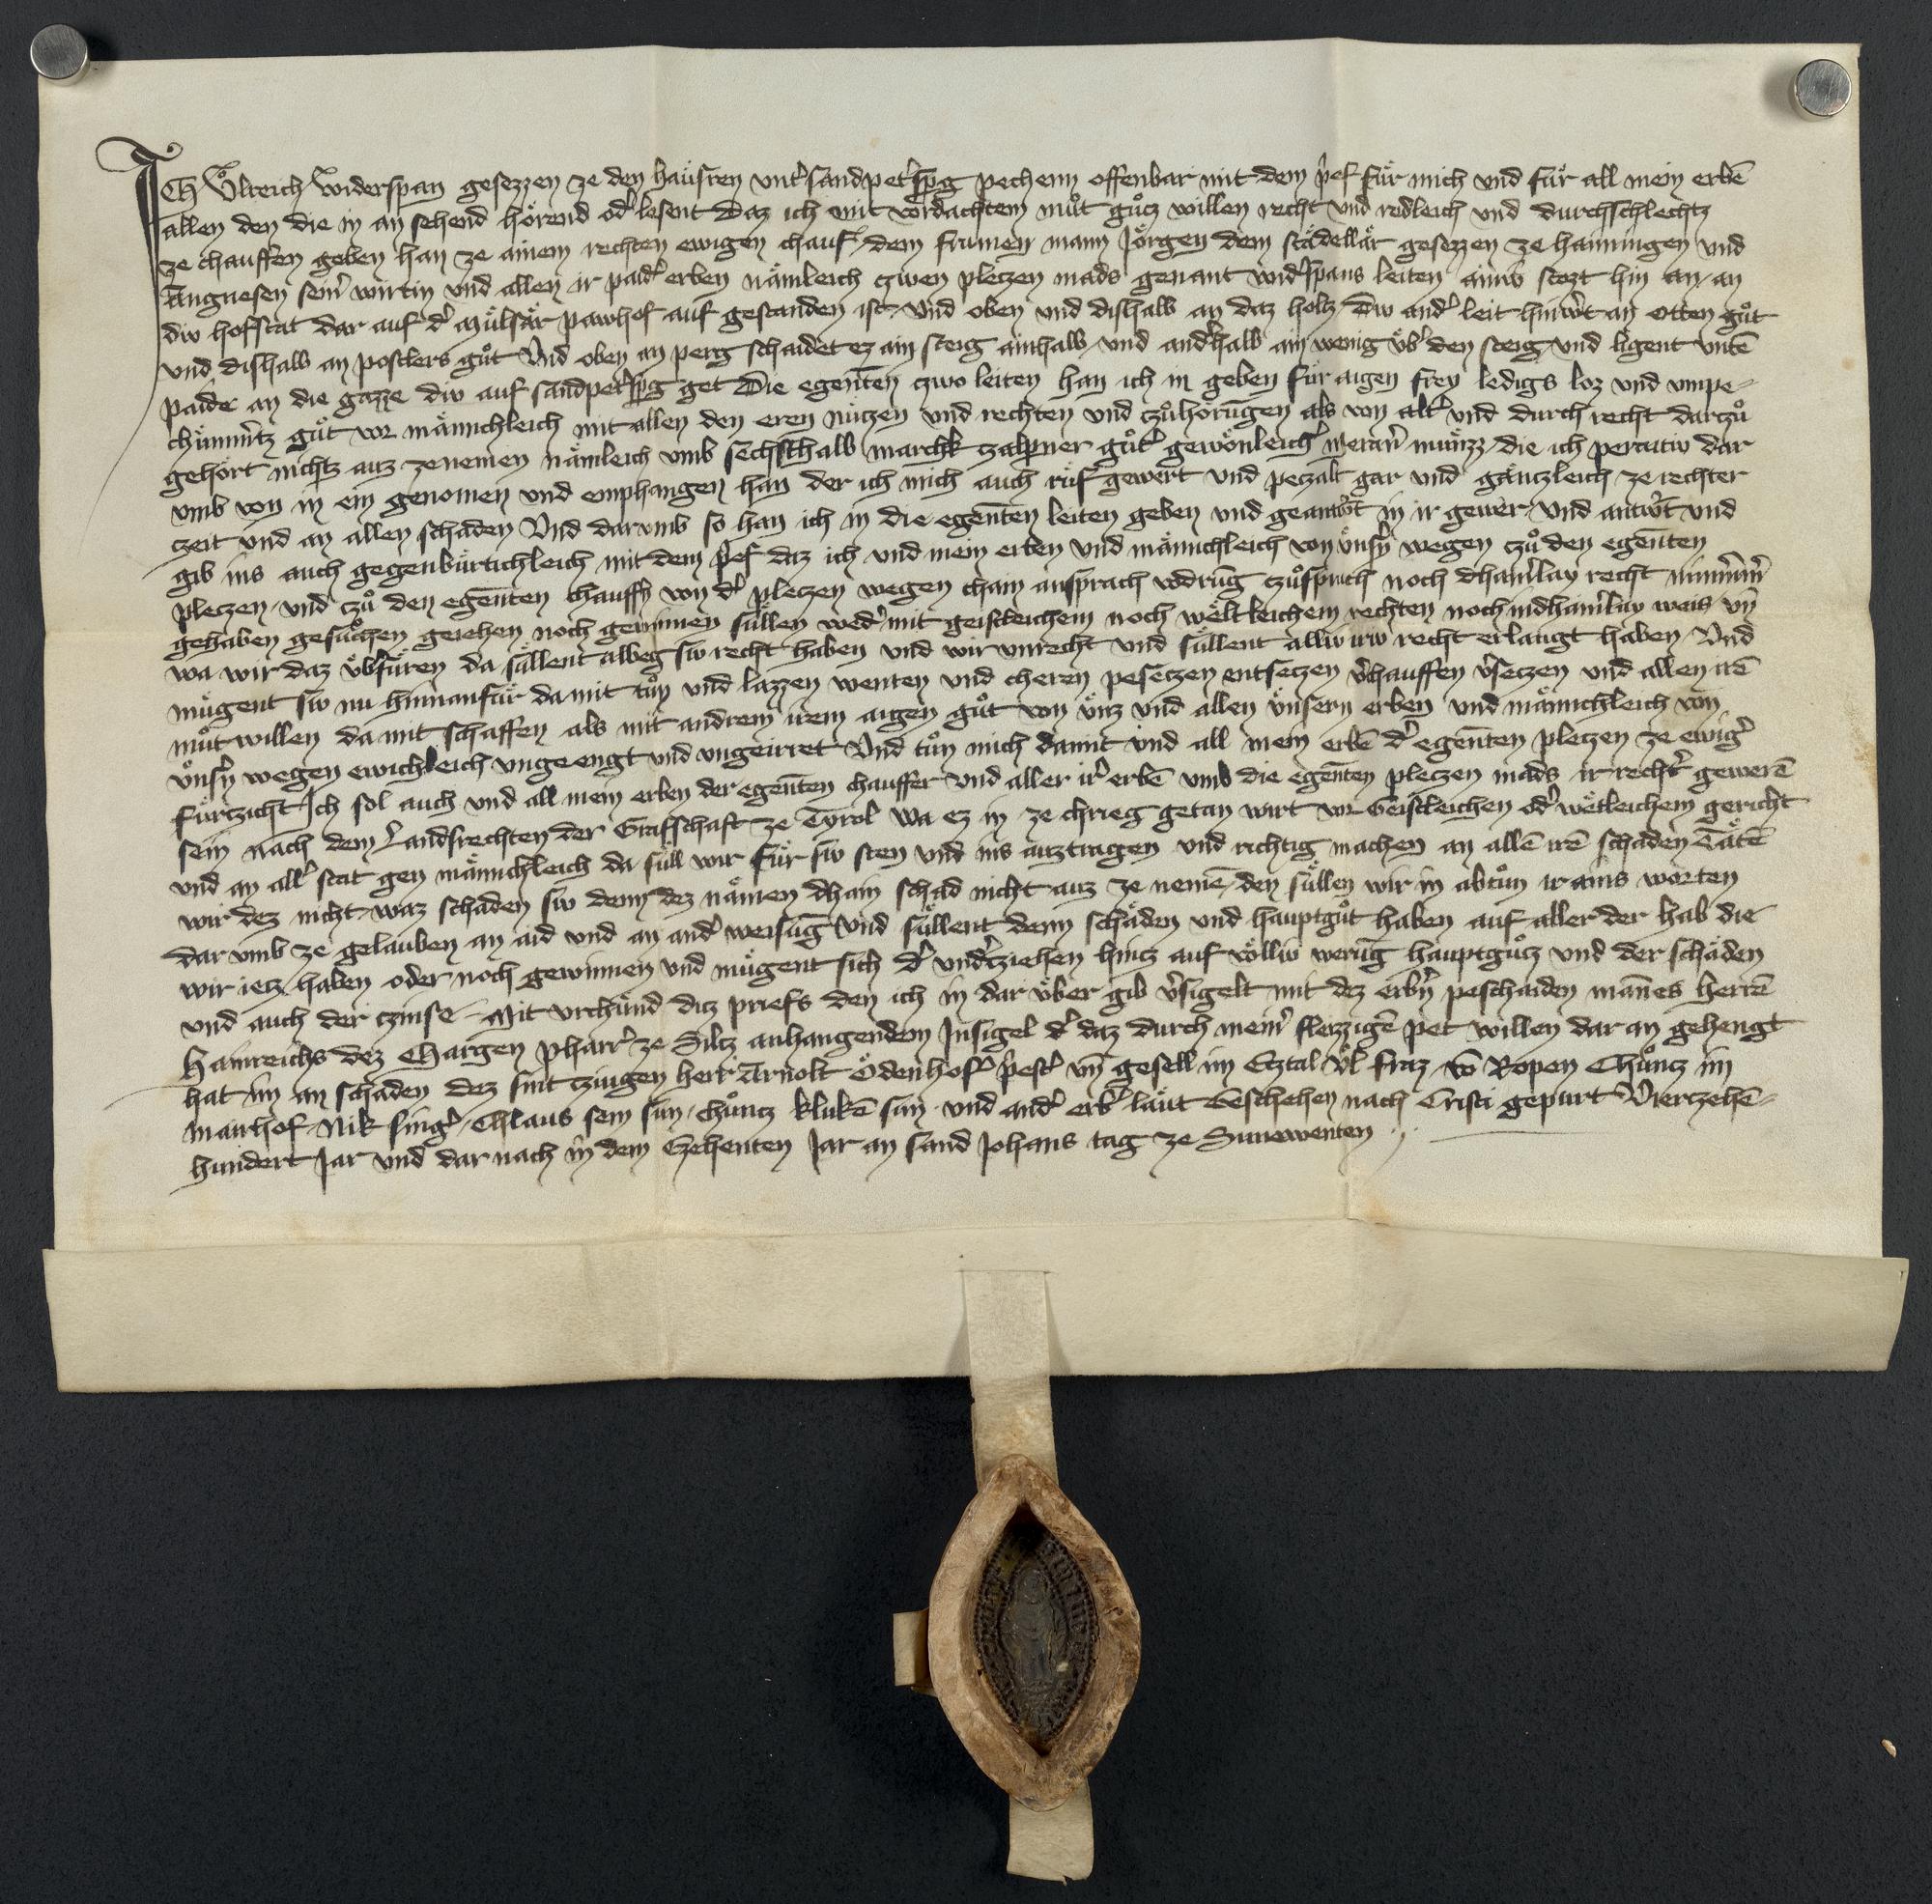 ICh Vͦlreich Widerspan gesezzen ze den haͤusren vnt' sandpet'sp'g vechenn offenbar mit dem p'ef fuͤr mich vnd fuͤr all mein erbē
allen den die in an sehend hoͤrend od' lesent Daz ich mit vordachtem muͦt guͦtz willen recht vnd redleich vnd durchschlechtz
ze chauffen geben han ze ainem rechten ewigen chauf dem frumen mann Joͤrgen dem staͤdellaͤr gesezzen ze haimingen vnd
Angnesen sein' wirtin vnd allen ir paid' erben naͤmleich zwen pletzen mads genant wid'spans leiten ainiv stozt hin an an
div hofstat dar auf d' Muͤlsaͤr pawhof auf gestanden ist vnd oben vnd dishalb an daz holtz Div and' leit hinw't an Otten guͦt
vnd dishalb an postlers guͦt Vnd oben an perg schaidet ez ain steig ainhalb vnd and'halb ain wenig vͤb' den steig vnd ligent vntē
paide an die gazze div auf sandpet'sp'g get Die egenten zwo leiten han ich in geben fuͤr aigen frey ledigs loz vnd vmpe-
chuͤmm'tz guͦt vor maͤnichleich mit allen den eren nuͤtzen vnd rechten vnd czuͦhoͤrūgen als von alt' vnd durch recht darzuͦ
gehoͤrt nichtz auz zenemen naͤmleich vmb sechsthalb marchk zalp'ner guͦt' gewoͤnleich' Meran' muͤnzz die ich peraitiv dar
vmb von in ein genomen vnd emphangen han der ich mich auch ruͤf gewert vnd pezalt gar vnd gaͤntzleich ze rechter
czeit vnd an allen schaden Vnd dar vmb so han ich in die egenten leiten geben vnd geantw't in ir gewer Vnd antw't vnd
gib ins auch gegenbuͤrtichleich mit dem p'ef daz ich vnd mein erben vnd maͤnichleich von vͤnsn' wegen czuͦ den egenten
pletzen vnd czuͦ den egenten chauffn' von d' pletzen wegen chain ansprach vodrūg czuͦspruch noch dhain'lay recht nimm'm'
gehaben gesuͦchen geiehen noch gewinnen suͤllen wed' mit geistleichem noch weͤltleichem rechten noch indhain'lay weis vn̄
wa wir daz vͤb'fuͤren da suͤllent albeg siv recht haben vnd wir vnrecht vnd suͤllent alliv iriv recht erlangt haben Vnd
muͤgent siv nu hinnanfuͤr da mit tuͦn vnd lazzen wenten vnd cheren pesetzen entsetzen v'chauffen v'setzen vnd allen irē
muͦtwillen da mit schaffen als mit andrem irem aigen guͦt von vͤnz vnd allen vͤnsern erben vnd maͤnichleich von
vͤnsn' wegen ewichleich vngeengt vnd vngeirret Vnd tuͦn mich damit vnd all mein erbē d' egenten pletzen ze ewig'
fuͤrtzicht Ich sol auch vnd all mein erben der egenten chauffer vnd aller ir' erbē vmb die egenten pletzen mads ir recht' gewerē
sein nach dem Landsrechten der Grafschaft ze Tyrol wa ez in ze chrieg getan wirt vor Geistleichen od' weͤltleichem gericht
vnd an all' stat gen maͤnichleich da suͤll wir fuͤr siv sten vnd ins auztragen vnd richtig machen an allē irē schaden Taͤtē
wir dez nicht waz schaden siv denn dez naͤmen dhain schad nicht auz ze nemē den suͤllen wir in abtuͦn ir ains worten
dar vmb ze gelauben an aid vnd an and' weisūg Vnd suͤllent denn schaͤden vnd hauptguͦt haben auf aller der hab die
wir ietz haben oder noch gewinnen vnd muͤgent sich d' vnd'tziehen hintz auf voͤlliv werūg hauptguͦtz vnd der schaͤden
vnd auch der zinse Mit vrchuͤnd ditz priefs den ich in dar vͤber gib v'sigelt mit dez erb'n peschaiden mānes herrē
Hainreichs dez Chargen pharr' ze Siltz anhangendem Insigel d' daz durch mein' fleizzigē pet willen dar an gehengt
hat im an schaden dez sint tzeugen herr Arnolt Oͤdenhof' p'est' vn̄ gesell im Etztal Vͦl fraz vō Ropen Chuͦntz im
Mairhof Nik sing' Chlaus sein sun Chuͦntz klukē sun vnd and' erb' laͤut Geschehen nach Cristi gepurt Viertzehē-
hundert Jar vnd dar nach in dem Zehenten Jar an sand Johans tag ze Sunewenten